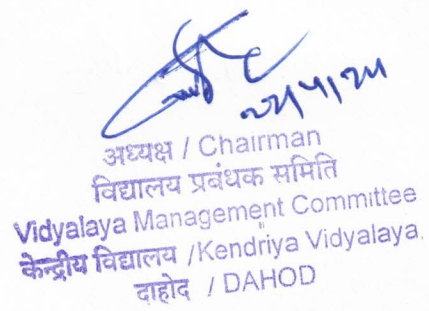 अध्यक्ष / Chairman
विद्यालय प्रबंधक समिति
Vidyalaya Management Committee
केन्द्रीय विद्यालय /Kendriya Vidyalaya.
दाहोद / DAHOD